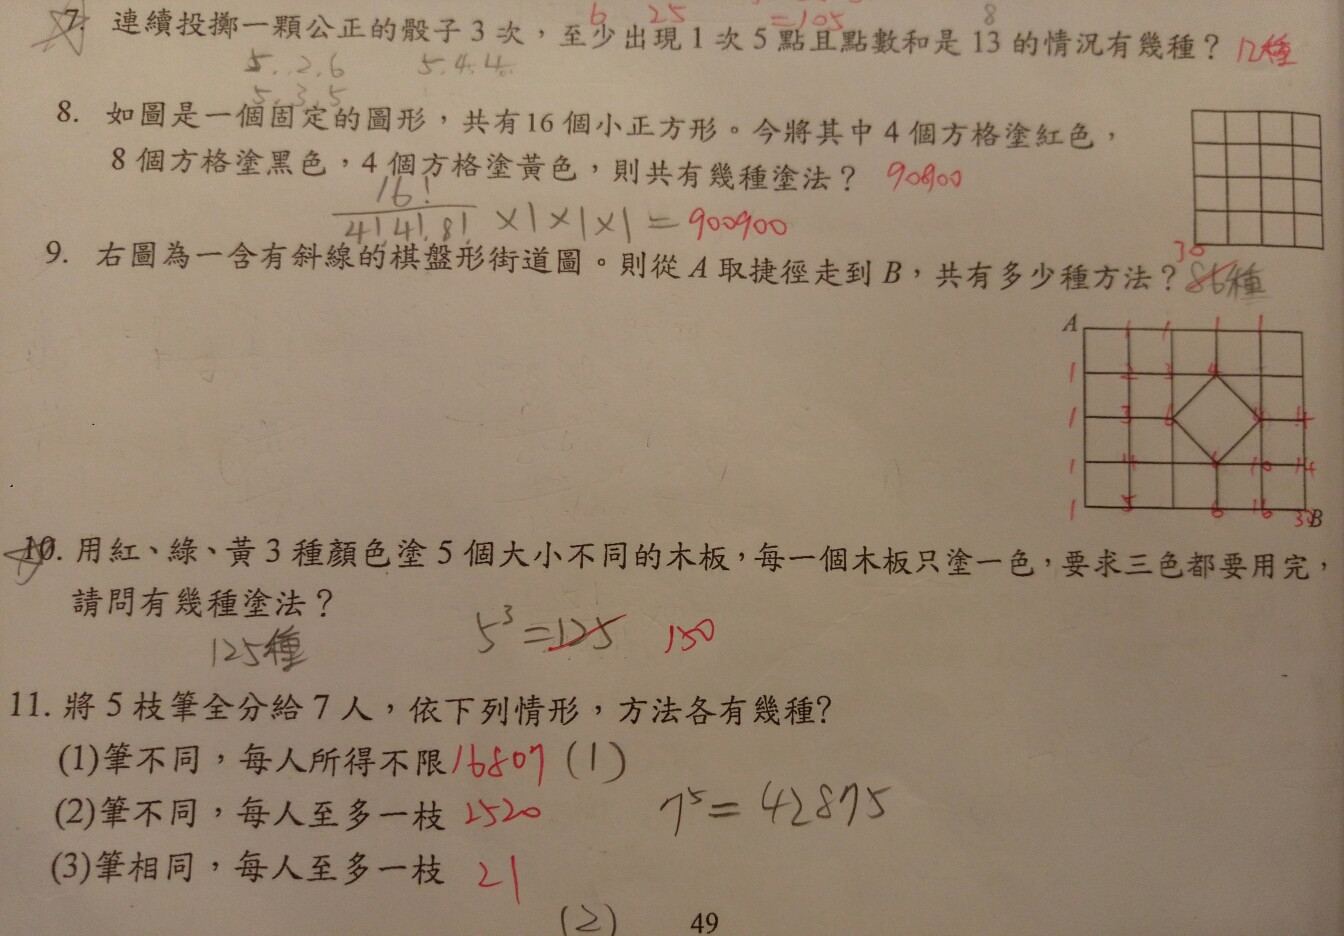 6 25 =105 8
7. 連續投擲一顆公正的骰子 3 次，至少出現 1 次 5 點且點數和是 13 的情況有幾種？ 12種
5. 2. 6 5. 4. 4.
5. 3. 5
8. 如圖是一個固定的圖形，共有16 個小正方形。今將其中 4 個方格塗紅色，
8 個方格塗黑色，4 個方格塗黃色，則共有幾種塗法？ 900900
16!
4!4!8! ×1×1×1 = 900900
9. 右圖為一含有斜線的棋盤形街道圖。則從 A 取捷徑走到 B，共有多少種方法？ 86種
30
A 1 1 1 1
1 2 3 4
1 3 6 4 4
1 4 6 10 14
1 5 6 16 30 B
10. 用紅、綠、黃 3 種顏色塗 5 個大小不同的木板，每一個木板只塗一色，要求三色都要用完，
請問有幾種塗法？
125種 5³=125 150
11. 將 5 枝筆全分給 7 人，依下列情形，方法各有幾種?
(1)筆不同，每人所得不限 16807 (1)
7⁵= 42875
(2)筆不同，每人至多一枝 2520
(3)筆相同，每人至多一枝 21
(2) 49